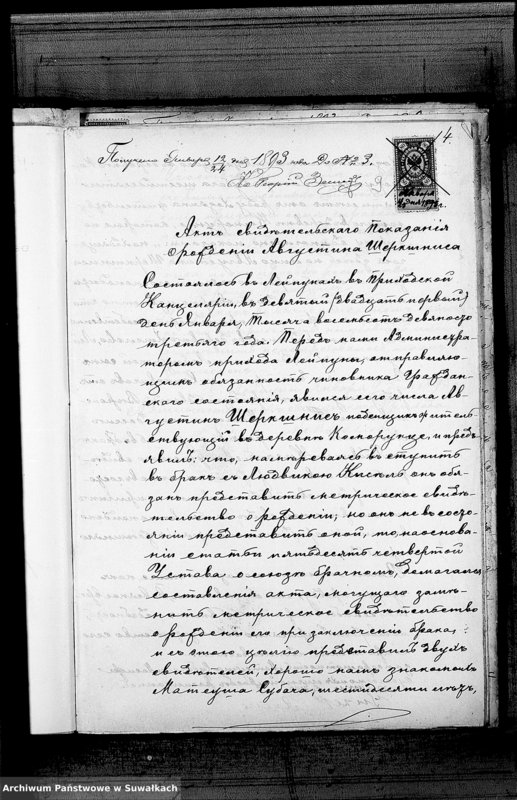 14.
Получено Января 12/24 дня 1893 года До №23.
Актъ свидѣтельскаго показанія
о рожденіи Августина Шеркшниса
Состоялось въ Лейпунахъ въ Приходской
Канцеляріи, въ девятый (двадцать первый)
день Января, Тысяча восемьсотъ девяносто
третьяго года. Передъ нами Администра-
торомъ прихода Лейпуны, отправляю-
щимъ обязанность чиновника Граждан-
скаго состоянія, явился сего числа Ав-
густинъ Шеркшнисъ поденщикъ житель-
ствующій въ деревнѣ и предъ-
явилъ: что, намѣреваясь вступить
въ бракъ съ Людвикою Кисель онъ обя-
занъ представить метрическое свидѣ-
тельство о рожденіи; но онъ не въ состо-
яніи представить оной, то, на основа-
ніи статьи пятьдесятъ четвертой
Устава о союзѣ брачномъ, домагался
составленія акта, могущаго замѣ-
нить метрическое свидѣтельство
о рожденіи его при заключеніи брака;
и съ этого цѣлію представилъ двухъ
свидѣтелей, хорошо намъ знакомыхъ
Матеуша Субача, шестидесяти лѣтъ,
Archiwum Państwowe w Suwałkach